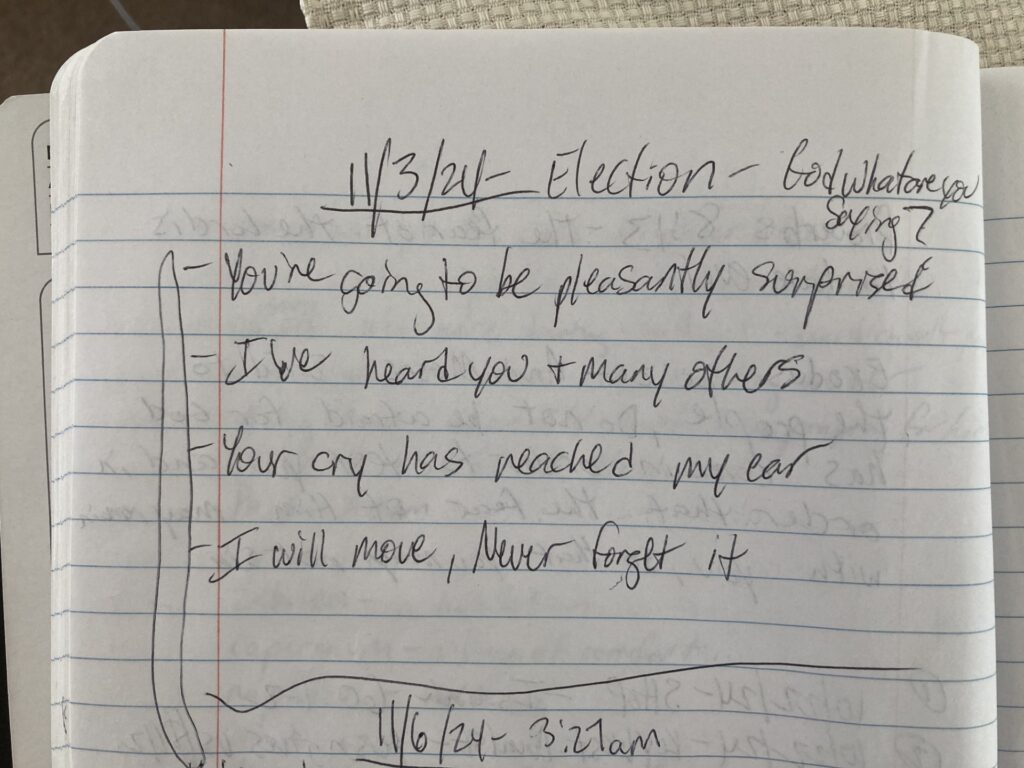 11/3/24- Election - God what are you
Saying?
- You're going to be pleasantly surprised
- I've heard you + many others
- Your cry has reached my ear
- I will move, Never forget it
11/6/24- 3:27am